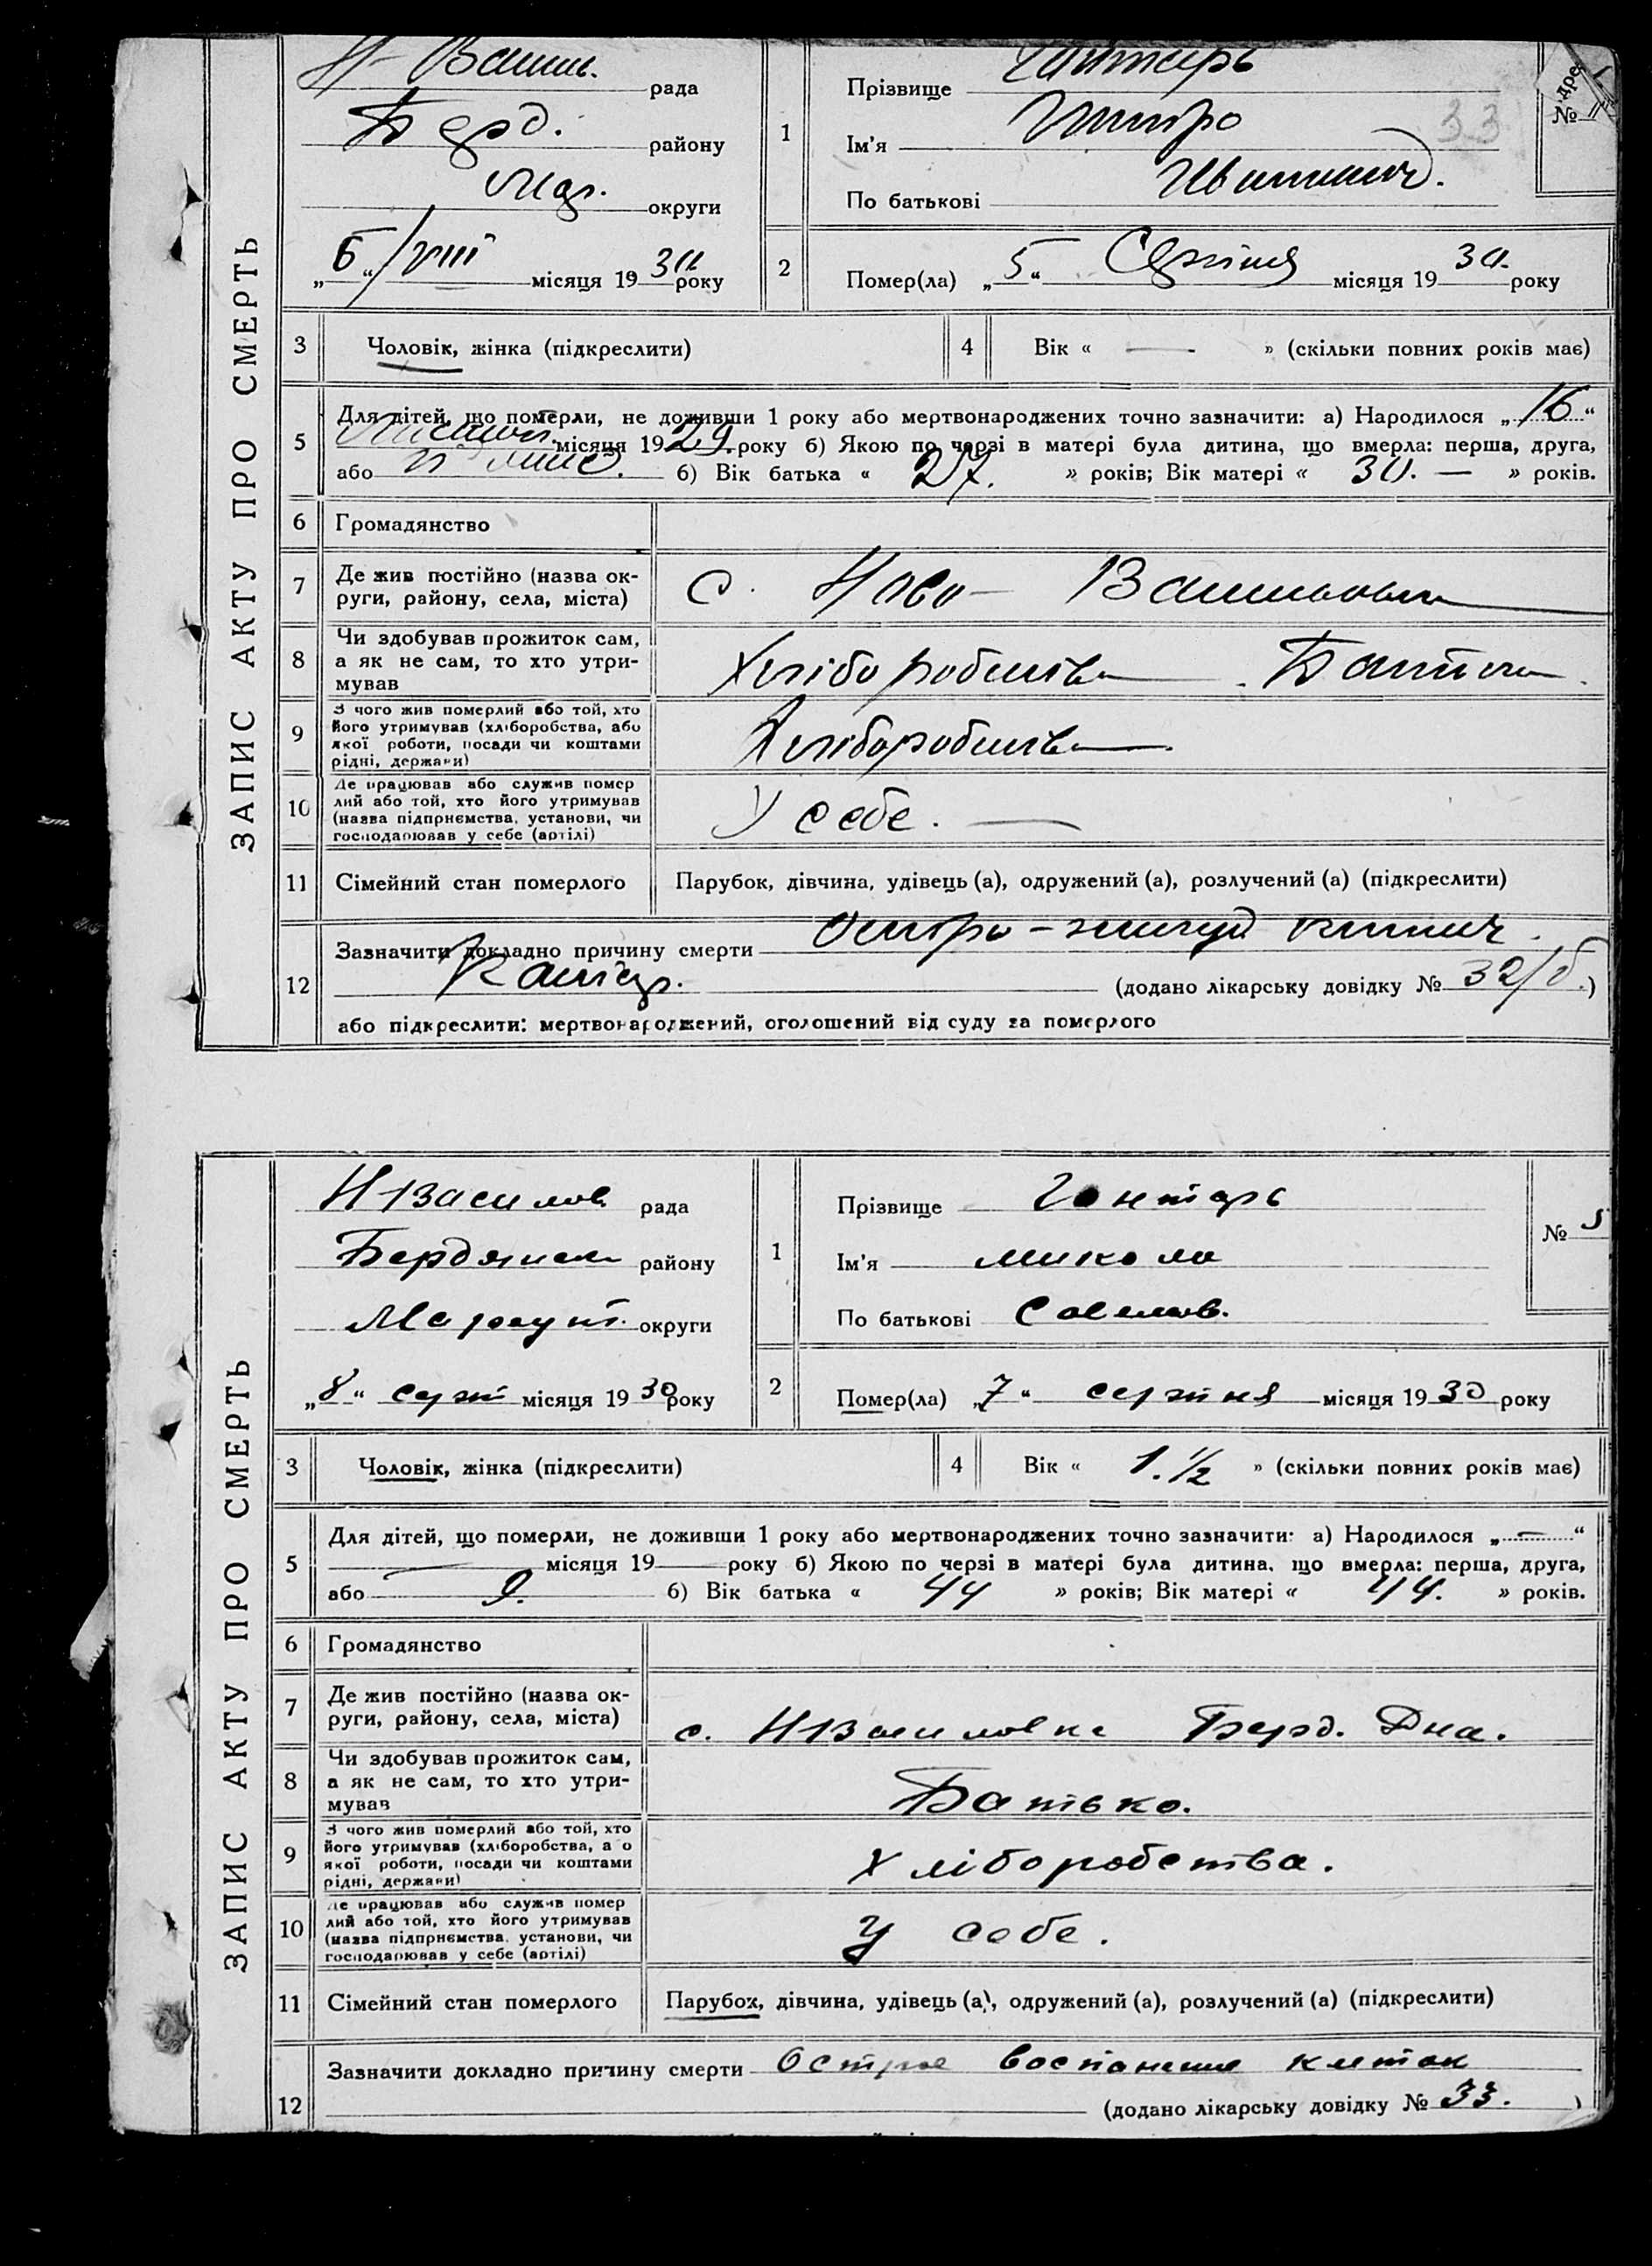 ЗАПИС АКТУ ПРО СМЕРТЬ
Н- Васил. рада
Берд. району
округи
„6“/VIII місяця 1930 року
1
Прізвище
Ім'я
По батькові
33
№
2
Помер(ла) „5“ Серпня місяця 1930. року
3 Чоловік, жінка (підкреслити)
4 Вік « — » (скільки повних років має)
5 Для дітей, що померли, не доживши 1 року або мертвонароджених точно зазначити: а) Народилося „16“
місяця 1929. року б) Якою по черзі в матері була дитина, що вмерла: перша, друга,
або 6) Вік батька « 27. » років; Вік матері « 30. — » років.
6 Громадянство
7 Де жив постійно (назва ок-
руги, району, села, міста)
с. Ново- Васильовка
8 Чи здобував прожиток сам,
а як не сам, то хто утри-
мував
Хліборобства Батько.
9 З чого жив померлий або той, хто
його утримував (хліборобства, або
якої роботи, посади чи коштами
рідні, держави)
Хліборобства
10 Де працював або служив помер
лий або той, хто його утримував
(назва підприємства, установи, чи
господарював у себе (артілі)
У себе. —
11 Сімейний стан померлого
Парубок, дівчина, удівець (а), одружений (а), розлучений (а) (підкреслити)
12 Зазначити докладно причину смерти
(додано лікарську довідку № 32/б.)
або підкреслити: мертвонароджений, оголошений від суду за померлого
ЗАПИС АКТУ ПРО СМЕРТЬ
Н Василов рада
Бердянск району
Мариуп. округи
„8“ серп місяця 1930 року
1
Прізвище Гонтарь
Ім'я Микола
По батькові Савелов.
№ 5
2
Помер(ла) „7“ серпня місяця 1930 року
3 Чоловік, жінка (підкреслити)
4 Вік « 1. 1/2 » (скільки повних років має)
5 Для дітей, що померли, не доживши 1 року або мертвонароджених точно зазначити: а) Народилося „—“
— місяця 19— року б) Якою по черзі в матері була дитина, що вмерла: перша, друга,
або 9. 6) Вік батька « 44 » років; Вік матері « 44. » років.
6 Громадянство
7 Де жив постійно (назва ок-
руги, району, села, міста)
с. Н Василовка Берд. Рна.
8 Чи здобував прожиток сам,
а як не сам, то хто утри-
мував
Батько.
9 З чого жив померлий або той, хто
його утримував (хліборобства, або
якої роботи, посади чи коштами
рідні, держави)
Хліборобства.
10 Де працював або служив помер
лий або той, хто його утримував
(назва підприємства, установи, чи
господарював у себе (артілі)
У себе.
11 Сімейний стан померлого
Парубок, дівчина, удівець (а), одружений (а), розлучений (а) (підкреслити)
12 Зазначити докладно причину смерти Острое воспаление кишок
(додано лікарську довідку № 33. )